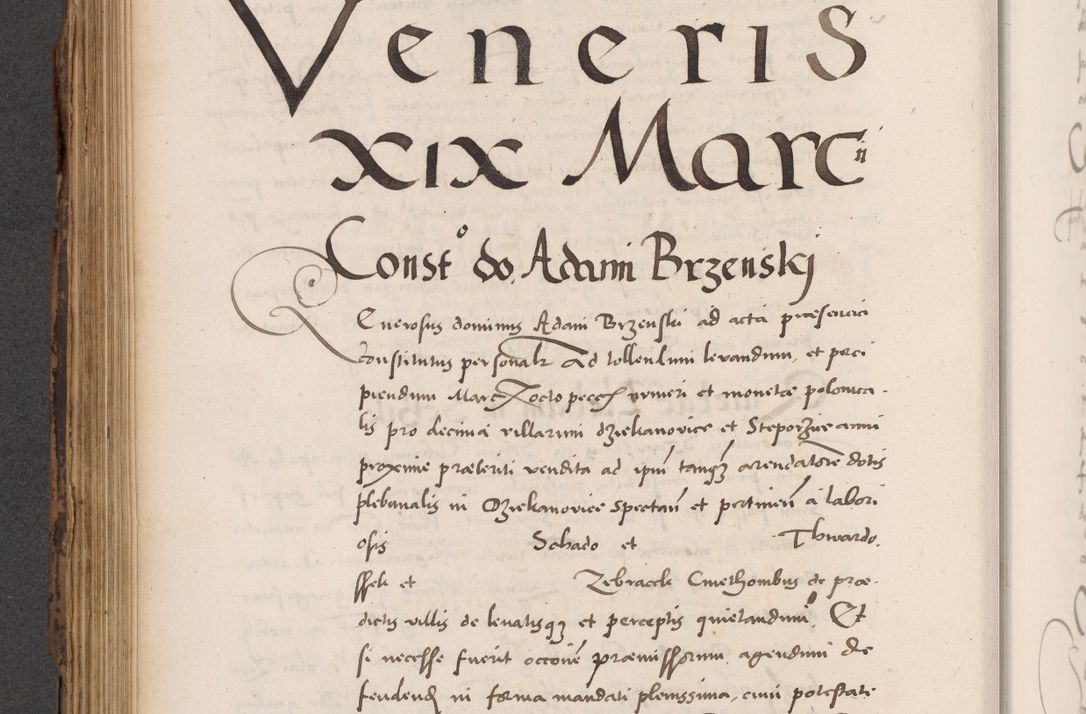 Veneris
XIX Marcii
Consto do. Adami Brzenskj
Generosus dominus Adam Brzenski ad acta præsencia
Constitutus personalr Ad tollendum levandum, et perci
piendum Marc X octo pecc numeri et monetæ polonica-
lis pro decima villarum Dziekanovice et Steporzue anni
proxime præteriti vendita ad ipm tamqz arendatore dotis
plebanalis in Dziekanovice spectan et pertinen a labori
osis Sebado et Thwardo,
ssek et Zebraczk Cmethonibus de præ-
dictis villis de levatisqz et perceptis quietandum, Et
si necesse fuerit occone præmissorum, agendum de
fendend in forma mandati plenissima, cum potestate